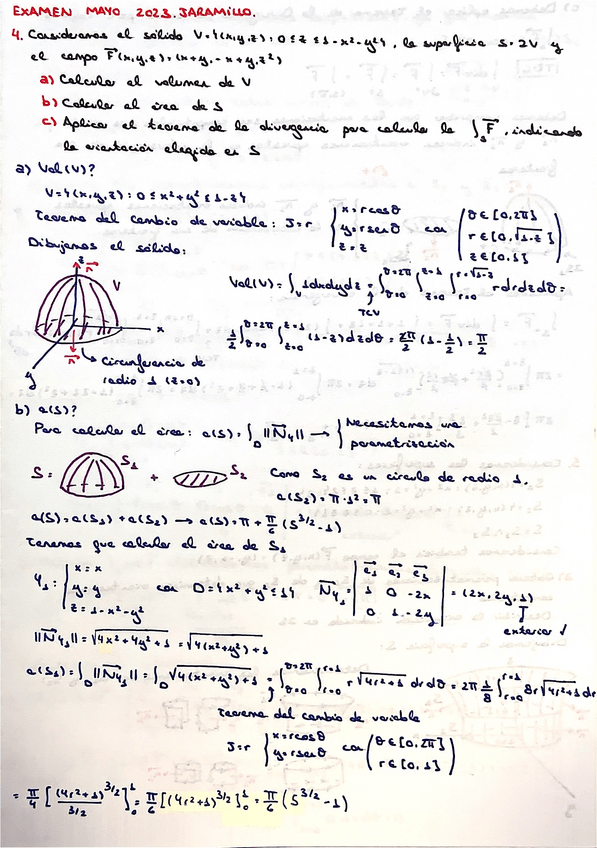 EXAMEN MAYO 2023. JARAMILLO.
4. Consideramos el sólido V={(x,y,z): 0≤z≤1-x²-y²}, la superficie S=∂V y
el campo F⃗(x,y,z)=(x+y,-x+y,z²)
a) Calcular el volumen de V
b) Calcular el área de S
c) Aplicar el teorema de la divergencia para calcular la ∫_S F⃗, indicando
la orientación elegida en S
a) Vol(V)?
V={(x,y,z): 0≤x²+y²≤1-z}
Teorema del cambio de variable: J=r { x=rcosθ y=rsenθ z=z con ( θ∈[0,2π] r∈[0,√1-z] z∈[0,1] )
Dibujamos el sólido:
z n⃗ V x y n⃗
Vol(V)=∫_V 1dxdydz = ∫_{θ=0}^{θ=2π} ∫_{z=0}^{z=1} ∫_{r=0}^{r=√1-z} rdrdzdθ=
TCV
1/2 ∫_{θ=0}^{θ=2π} ∫_{z=0}^{z=1} (1-z)dzdθ = 2π/2 (1-1/2) = π/2
Circunferencia de
radio 1 (z=0)
b) a(S)?
Para calcular el área: a(S)=∫_D ||N⃗φ|| → { Necesitamos una
parametrización
S= S₁ + S₂ Como S₂ es un círculo de radio 1.
a(S₂)=π·1²=π
a(S)=a(S₁)+a(S₂) → a(S)=π+π/6 (5^{3/2}-1)
Tenemos que calcular el área de S₁
φ₁: { x=x y=y z=1-x²-y² con D={x²+y²≤1} N⃗φ₁ = | e⃗₁ e⃗₂ e⃗₃ | 1 0 -2x | 0 1 -2y | = (2x,2y,1)
exterior ✓
||N⃗φ₁||=√4x²+4y²+1 = √4(x²+y²)+1
a(S₁)=∫_D ||N⃗φ₁|| = ∫_D √4(x²+y²)+1 = ∫_{θ=0}^{θ=2π} ∫_{r=0}^{r=1} r√4r²+1 drdθ = 2π 1/8 ∫_{r=0}^{r=1} 8r√4r²+1 dr
Teorema del cambio de variable
J=r { x=rcosθ y=rsenθ con ( θ∈[0,2π] r∈[0,1] )
= π/4 [ (4r²+1)^{3/2} / 3/2 ]₀¹ = π/6 [(4r²+1)^{3/2}]₀¹ = π/6 (5^{3/2}-1)